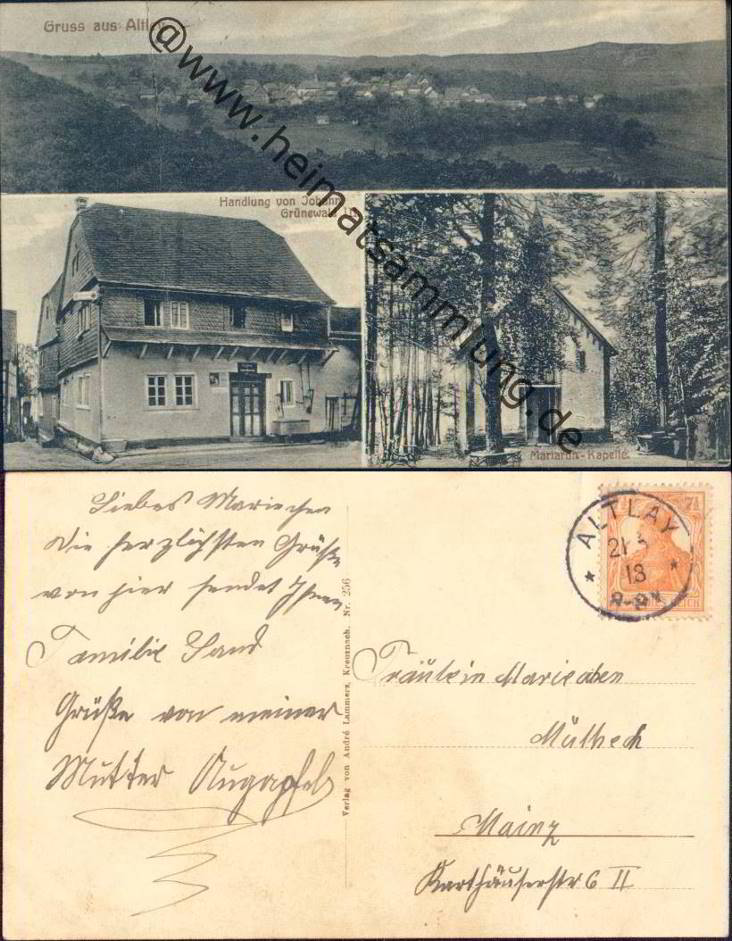 Gruss aus Altlay
@www.heimatsammlung.de
Handlung von Johann
Grünewald
Mariaroth-Kapelle.
Liebes Mariechen
Die herzlichsten Grüße
von hier sendet Ihnen
Familie Sand
Grüße von meiner
Mutter Augapfel
Verlag von André Lammers, Kreuznach. Nr. 256
ALTLAY
21.
18
7½
Fräulein Mariechen
Mülbech
Mainz
Karthäuserstr 6 II